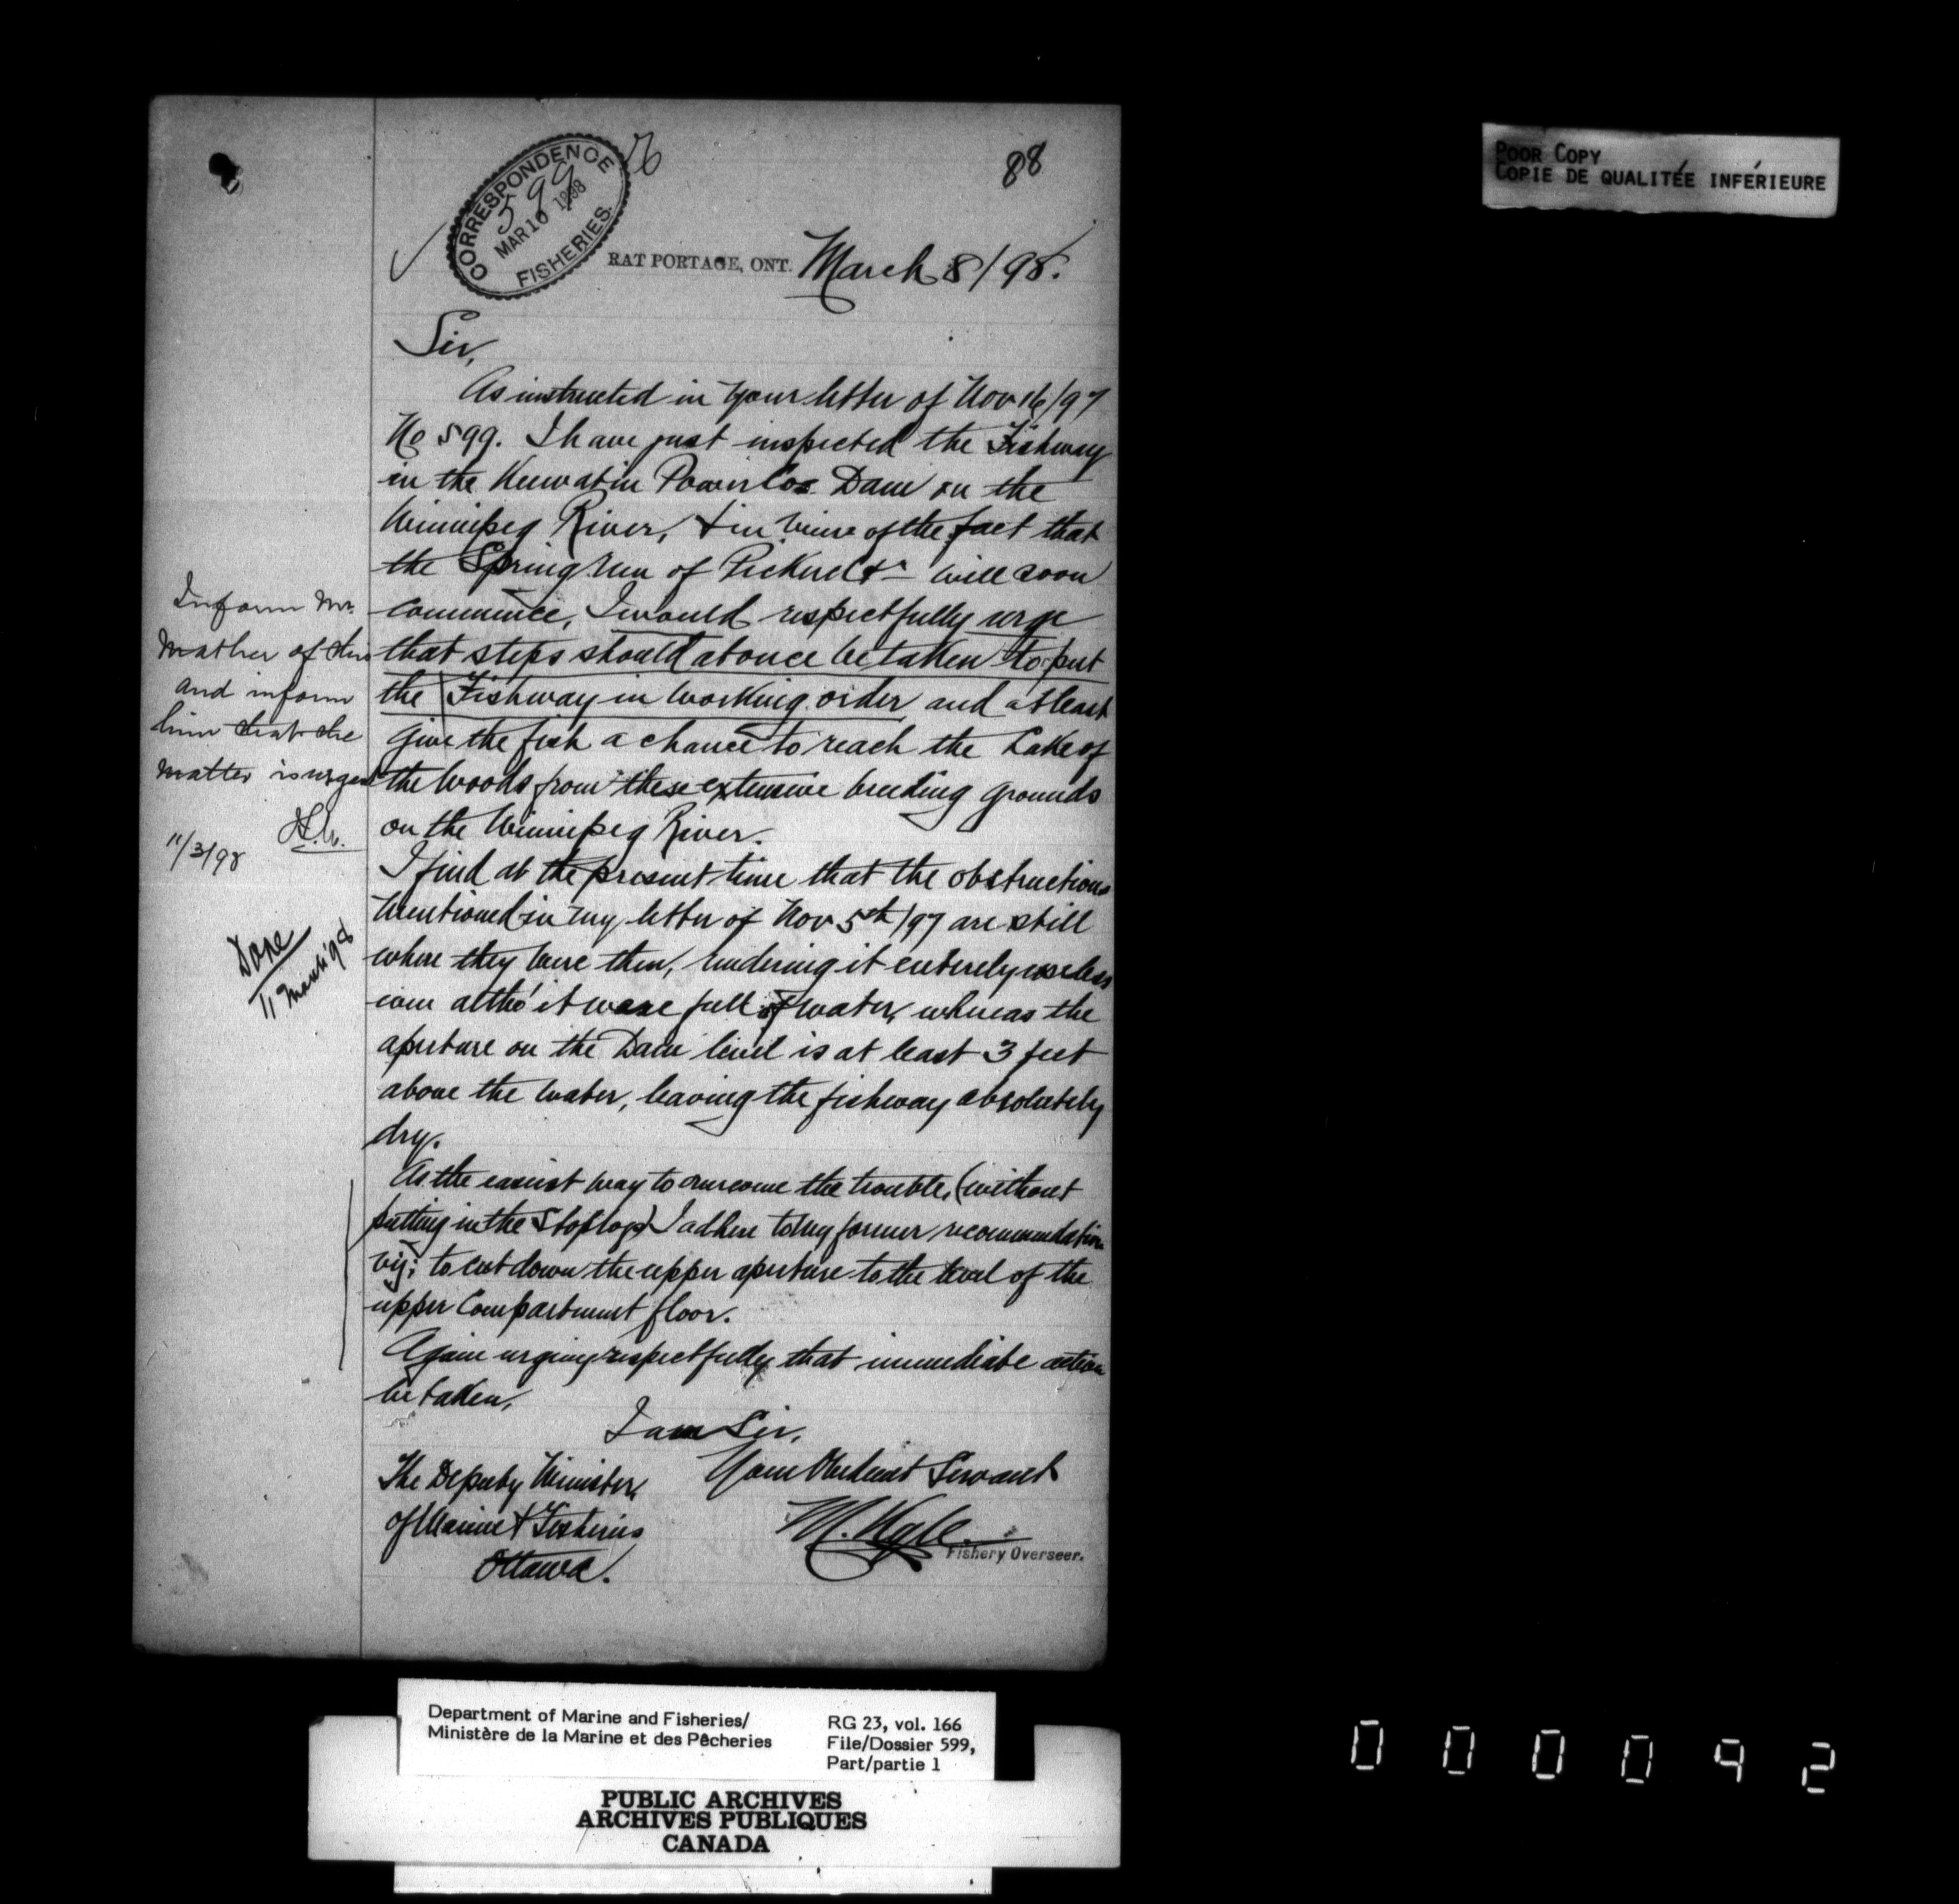 88
CORRESPONDENCE
599
MAR 10 1898
FISHERIES.
RAT PORTAGE, ONT. March 8/98.
Sir,
As instructed in your letter of Nov 16/97
No 599. I have just inspected the Fishway
in the Keewatin Power Cos. Dam on the
Winnipeg River, & in view of the fact that
the Spring run of Pickerel &c will soon
commence, I would respectfully urge
that steps should at once be taken to put
the Fishway in working order and at least
give the fish a chance to reach the Lake of
the Woods from these extensive breeding grounds
on the Winnipeg River.
I find at the present time that the obstructions
mentioned in my letter of Nov 5th/97 are still
where they were then, rendering it entirely useless
even altho' it were full of water, whereas the
aperture on the Dam level is at least 3 feet
above the water, leaving the fishway absolutely
dry.
As the easiest way to overcome the trouble, (without
putting in the Stoplogs) I adhere to my former recommendation
viz; to cut down the upper aperture to the level of the
upper Compartment floor.
Again urging respectfully that immediate action
be taken,
I am Sir,
Your Obedient Servant
M. Kyle
Fishery Overseer.
The Deputy Minister,
of Marine & Fisheries
Ottawa.
Inform Mr.
Mather of this
and inform
him that the
matter is urgent
11/3/98
Done
11 March '98
POOR COPY
COPIE DE QUALITÉE INFÉRIEURE
Department of Marine and Fisheries/
Ministère de la Marine et des Pêcheries
RG 23, vol. 166
File/Dossier 599,
Part/partie 1
PUBLIC ARCHIVES
ARCHIVES PUBLIQUES
CANADA
000092